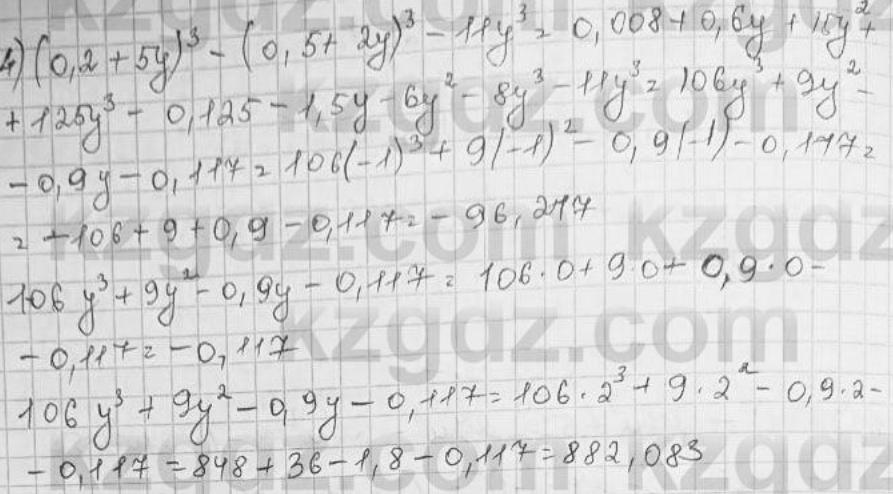 4) (0,2 + 5y)³ - (0,5 + 2y)³ - 11y³ = 0,008 + 0,6y + 15y² +
+ 125y³ - 0,125 - 1,5y - 6y² - 8y³ - 11y³ = 106y³ + 9y² -
- 0,9y - 0,117 = 106(-1)³ + 9(-1)² - 0,9(-1) - 0,117 =
= -106 + 9 + 0,9 - 0,117 = - 96,217
106y³ + 9y² - 0,9y - 0,117 = 106·0 + 9·0 + 0,9·0 -
- 0,117 = - 0,117
106y³ + 9y² - 0,9y - 0,117 = 106·2³ + 9·2² - 0,9·2 -
- 0,117 = 848 + 36 - 1,8 - 0,117 = 882,083
kzgdz.com